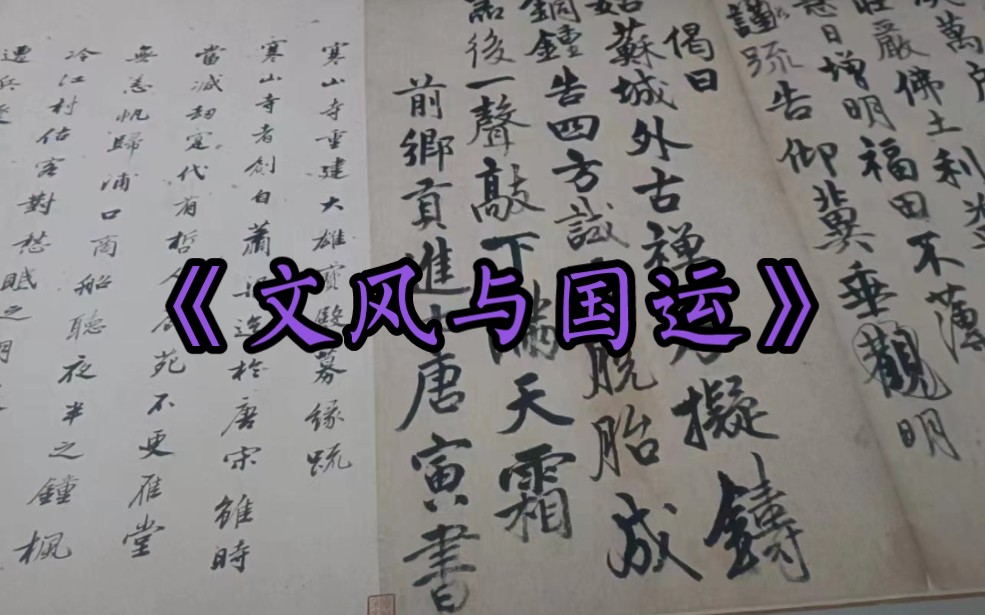 《文风与国运》
萬
莊嚴佛土利
慧日增明福田不薄
謹疏告仰冀垂觀明
偈曰
姑蘇城外古禪擬鑄
銅鐘告四方試脫胎成
器後一聲敲下滿天霜
前鄉貢進唐寅書
寒山寺重建大雄寶殿募緣疏
寒山寺者創自蕭梁迄於唐宋雖時
當減劫定代有哲苑不更雁堂
無恙帆歸浦口商船聽夜半之鐘楓
冷江村估客對愁賦之
遭兵